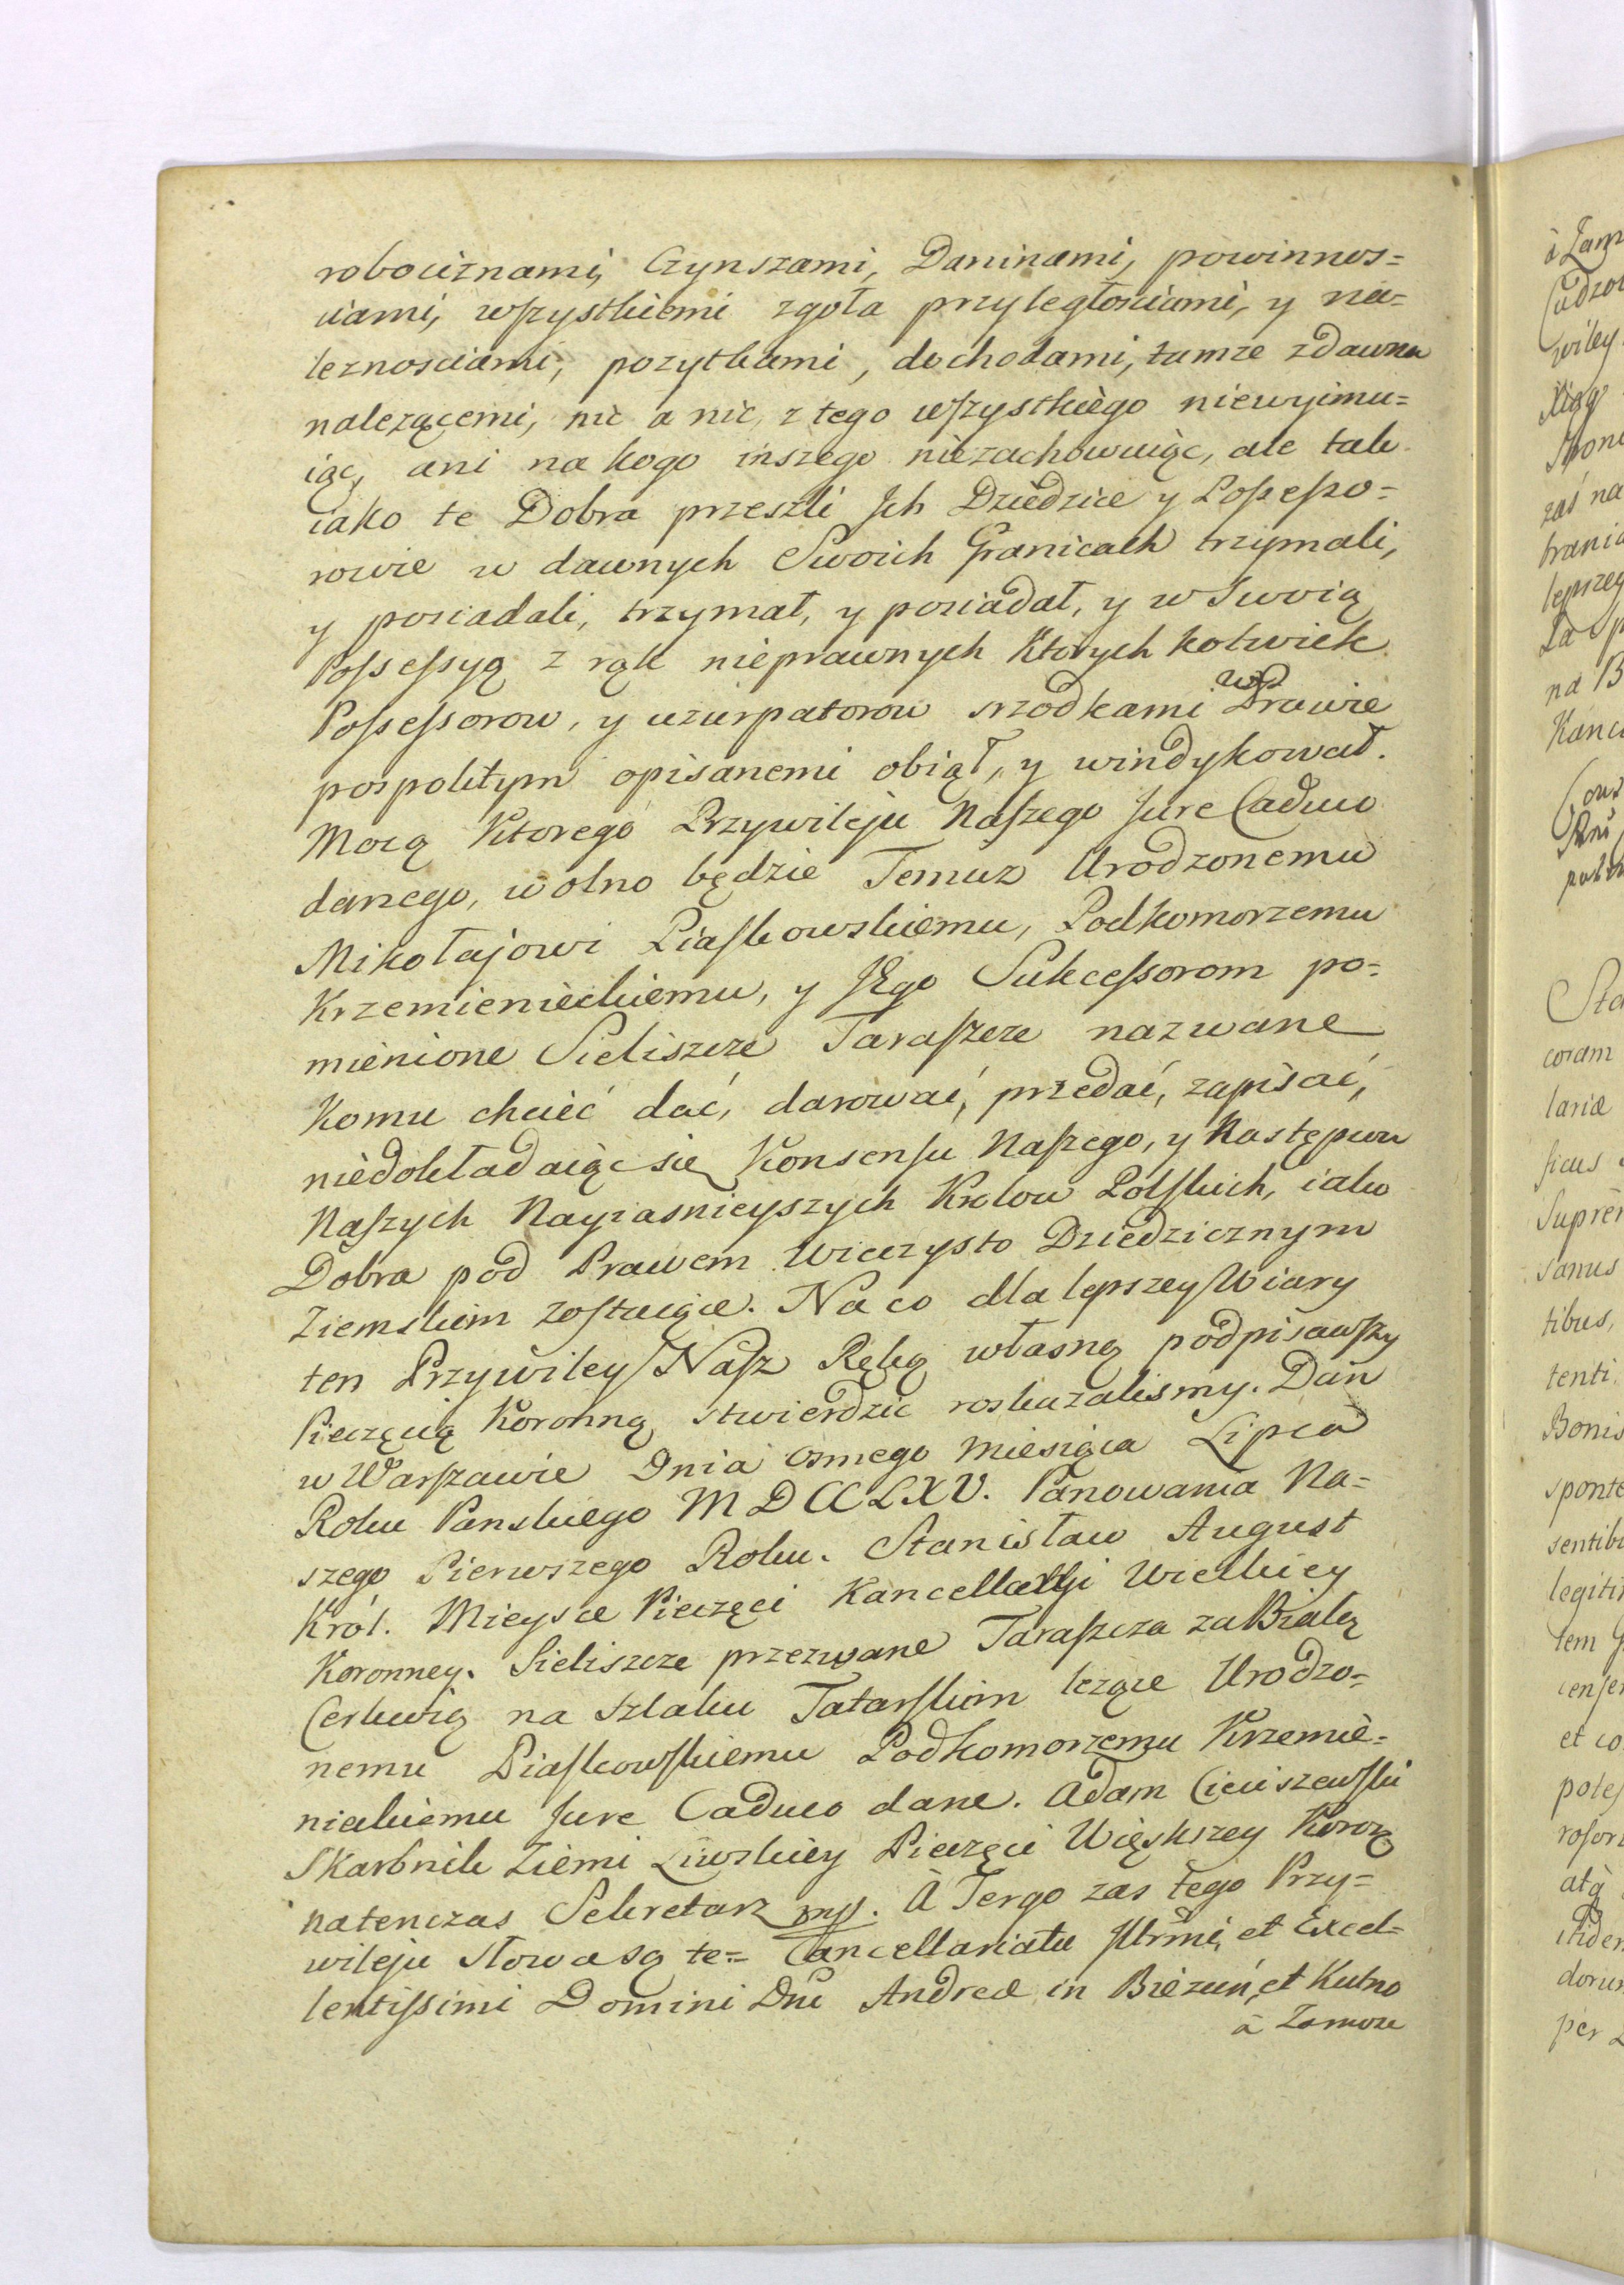 robociznami, Czynszami, Daninami, powinnos=
ciami, wszystkiemi zgoła przyległościami, y na=
leznosciami, pozytkami, dochodami, tamze zdawna
nalezącemi, nic a nic z tego wszystkiego niewyimu=
iąc, ani na kogo inszego niezachowuiąc, ale tak
iako te Dobra przeszli Jch Dziedzice y Possesso=
rowie w dawnych Swoich Granicach trzymali,
y posiadali, trzymał, y posiadał, y w Swoią
Possessyą z rąk nieprawnych Ktorych kolwiek
Possessorow, y uzurpatorow srzodkami w Prawie
pospolitym opisanemi obiął, y windykował.
Mocą Ktorego Przywileju Naszego Jure Caduco
danego, wolno będzie Temuz Urodzonemu
Mikołajowi Piaskowskiemu, Podkomorzemu
Krzemienieckiemu, y JEgo Sukcessorom po=
mienione Sieliszcze Taraszcze nazwane
Komu chcieć dać, darować, przedać, zapisać,
niedokładaiąc się Konsensu Naszego, y Następcow
Naszych Nayiasnieyszych Krolow Polskich, iako
Dobra pod Prawem Wieczysto Dziedzicznym
Ziemskim zostaiące. Na co dla lepszey Wiary
ten Przywiley Nasz Ręką własną podpisawszy
Pieczęcią Koronną stwierdzic roskazalismy. Dan
w Warszawie Dnia osmego Miesiąca Lipca
Roku Panskiego MDCCLXV. Panowania Na=
szego Pierwszego Roku. Stanisław August
Król. Mieysce Pieczęci Kancellaryi Wielkiey
Koronney. Sieliszcze przezwane Taraszcza za Białą
Cerkwią na Szlaku Tatarskim lezące Urodzo=
nemu Piaskowskiemu Podkomorzemu Krzemie=
nieckiemu Jure Caduco dane. Adam Cieciszewski
Skarbnik Ziemi Liwskiey Pieczęci Większey Koron
natenczas Sekretarz mp. A Tergo zas tego Przy=
wileju Słowa są te= Cancellariatu Jllrmi, et Excel=
lentissimi Domini Dni Andreæ in Biezuń, et Kutno
à Zamosc
à Zam
wiley
zaś na
na B
Sta
coram
lariæ
ficus
tibus,
tenti
Bonis
sponte
sentibu
legiti
et co
per